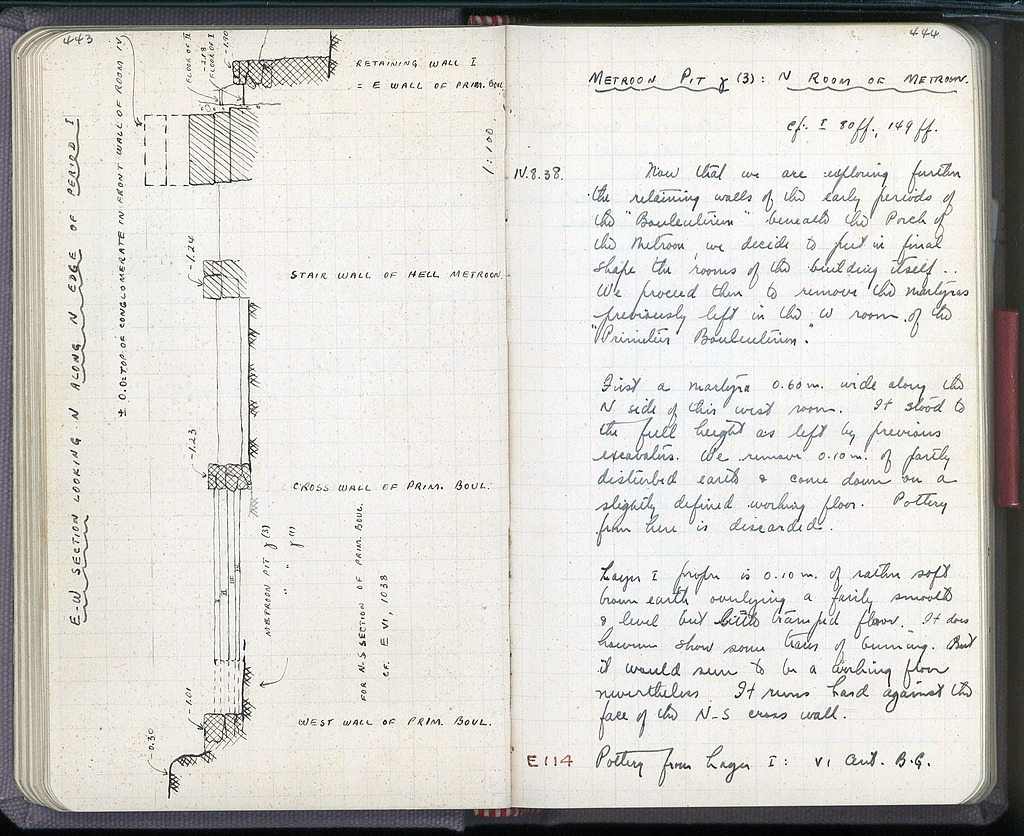 443
E-W SECTION LOOKING N ALONG N EDGE OF PERIOD I
± 0.0 = TOP OF CONGLOMERATE IN FRONT WALL OF ROOM IV
FLOOR OF II
-2.18
FLOOR OF I
-1.90
RETAINING WALL I
= E WALL OF PRIM. BOUL
1:100
-1.24
STAIR WALL OF HELL METROON
-1.23
CROSS WALL OF PRIM. BOUL.
I
II
III
IV
METROON PIT γ (3)
" " γ (1)
FOR N-S SECTION OF PRIM. BOUL.
CF. E VI, 1038
-1.01
WEST WALL OF PRIM. BOUL.
-0.30
444
METROON PIT γ (3): N ROOM OF METROON.
cf. I 80 ff., 149 ff.
IV.8.38. Now that we are exploring further
the retaining walls of the early periods of
the "Bouleuterion" beneath the Porch of
the Metroon, we decide to put in final
shape the rooms of the building itself..
We proceed then to remove the martyras
previously left in the W room of the
"Primitive Bouleuterion."
First a martyra 0.60 m. wide along the
N side of this west room. It stood to
the full height as left by previous
excavators. We remove 0.10 m. of partly
disturbed earth & come down on a
slightly defined working floor. Pottery
from here is discarded.
Layer I proper is 0.10 m. of rather soft
brown earth overlying a fairly smooth
& level but little tramped floor. It does
however show some traces of burning. But
it would seem to be a working floor
nevertheless. It runs hard against the
face of the N-S cross wall.
E 114 Pottery from Layer I: VI cent. B.C.